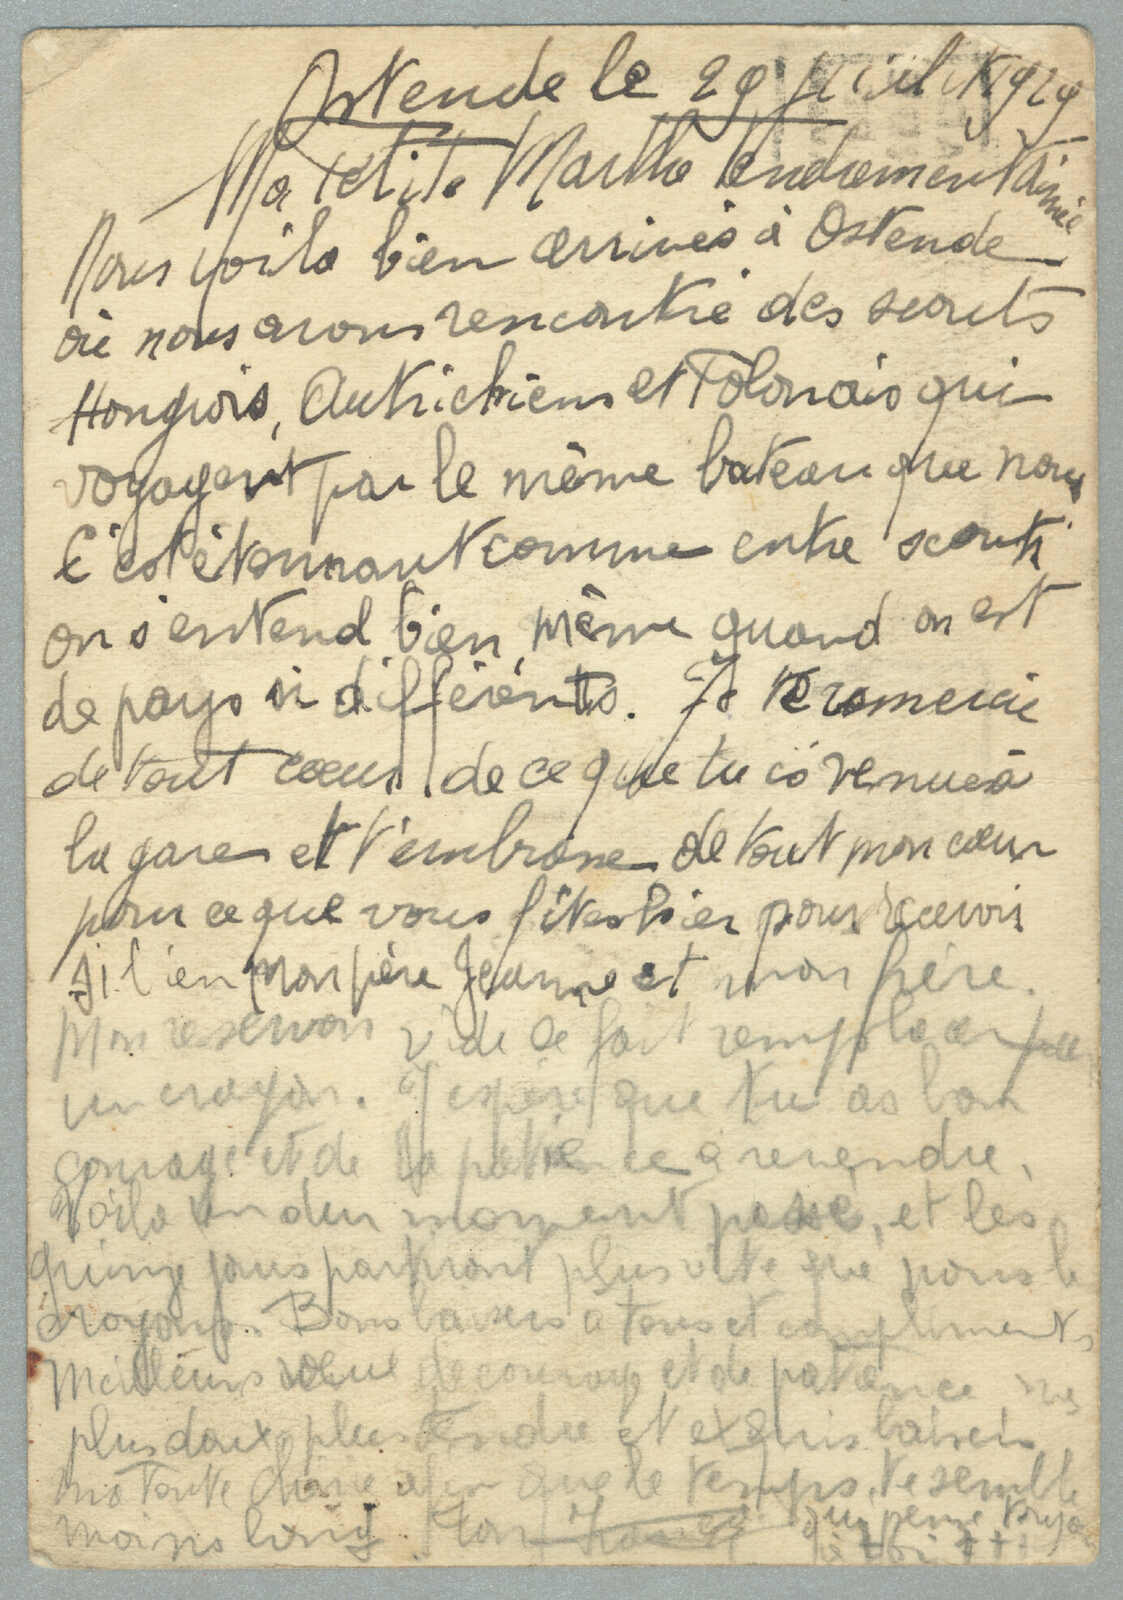 Ostende le 29 juillet 1929
Ma Petite Marthe tendrement aimée
Nous voila bien arrivés à Ostende
où nous avons rencontré des scouts
Hongrois, Autrichiens et Polonais qui
voyagent par le même bateau que nous
C'est étonnant comme entre scouts
on s'entend bien, même quand on est
de pays si différents. Je te remercie
de tout cœur de ce que tu es venue à
la gare et t'embrasse de tout mon cœur
pour ce que vous fîtes hier pour recevoir
si bien mon père Jeanne et mon frère.
Mon reservoir vide le fait remplacer par
un crayon. J'espère que tu as bon
courage et de la patience à revendre.
Voila un dur moment passé, et les
quinze jours partiront plus vite que nous le
croyons. Bons baisers à tous et compliments
Meilleurs vœux de courage et de patience mes
plus doux, plus tendre et exquis baisers
ma Toute Chérie afin que le temps te semble
moins long. Ton qui pense toujours
à toi + + +